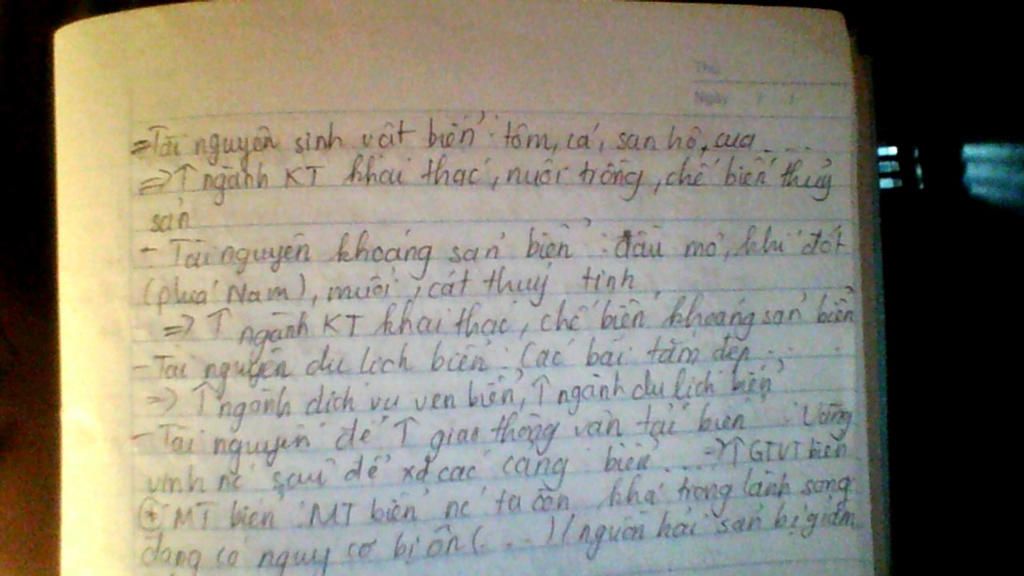 Thứ
Ngày / /
- Tài nguyên sinh vật biển : tôm, cá, san hô, cua ....
=> ↑ ngành KT khai thác, nuôi trồng, chế biến thuỷ
sản
- Tài nguyên khoáng sản biển : dầu mỏ, khí đốt
(phía Nam), muối, cát thuỷ tinh
=> ↑ ngành KT khai thác, chế biến khoáng sản biển
- Tài nguyên du lịch biển : các bãi tắm đẹp ...
=> ↑ ngành dịch vụ ven biển, ↑ ngành du lịch biển
- Tài nguyên để ↑ giao thông vận tải biển : Vũng
vịnh nc sâu để xd các cảng biển ... => ↑ GTVT biển
+ MT biển : MT biển nc ta còn khá trong lành song
đang có nguy cơ bị ôn (...) (nguồn hải sản bị giảm